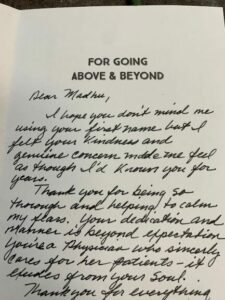 FOR GOING
ABOVE & BEYOND
Dear Madhu,
I hope you don't mind me
using your first name but I
felt your kindness and
genuine concern made me feel
as though I'd known you for
years.
Thank you for being so
thorough and helping to calm
my fears. Your dedication and
manner is beyond expectation
you're a Physician who sincerly
cares for her patients - it
exudes from your soul!
Thank you for everything,